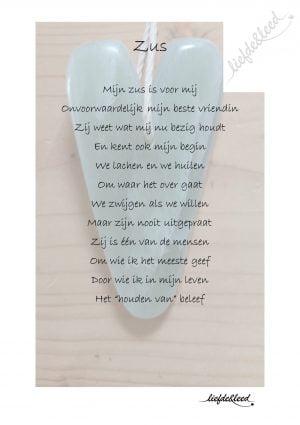 liefde&leed
Zus
Mijn zus is voor mij
Onvoorwaardelijk mijn beste vriendin
Zij weet wat mij nu bezig houdt
En kent ook mijn begin
We lachen en we huilen
Om waar het over gaat
We zwijgen als we willen
Maar zijn nooit uitgepraat
Zij is één van de mensen
Om wie ik het meeste geef
Door wie ik in mijn leven
Het “houden van” beleef
liefde&leed